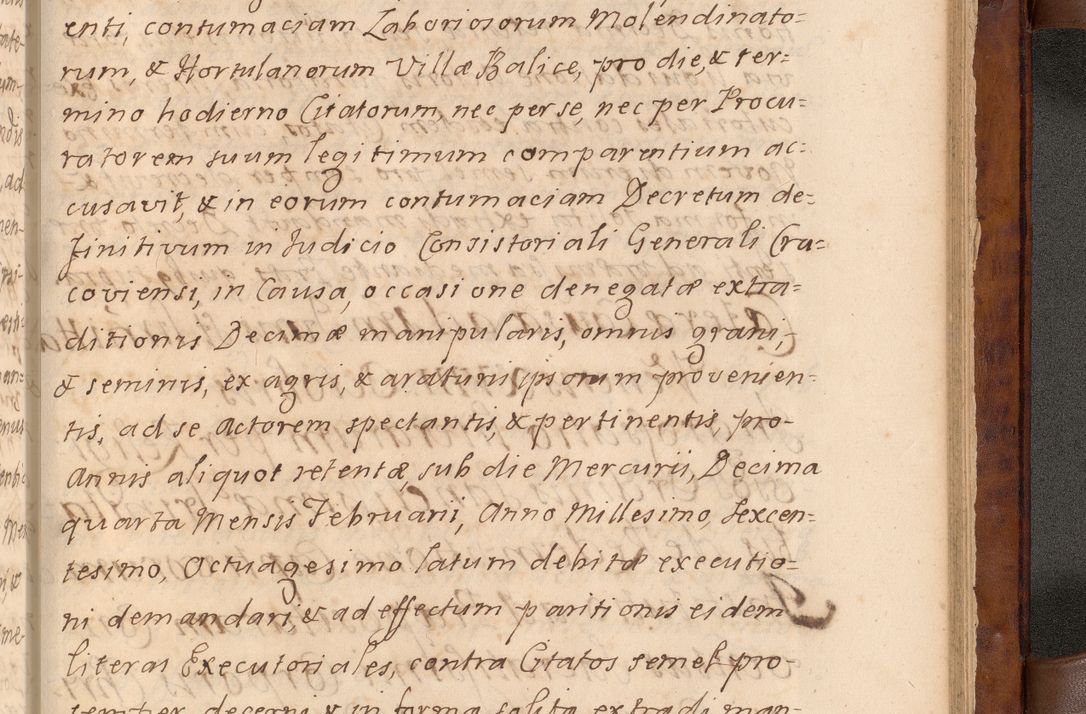 enti, contumaciam Laboriosorum Molendinato=
rum, & Hortulanorum Villæ Balice, pro die, & ter=
mino hodierno Citatorum, nec per se, nec per Procu=
ratorem suum legitimum comparentium ac=
cusavit, & in eorum contumaciam Decretum de=
finitivum in Judicio Consistoriali Generali Cra=
coviensi, in Causa, occasione denegatæ extra=
ditionis Decimæ manipularis, omnis grani,
& seminis, ex agris, & araturis ipsorum provenien=
tis, ad se Actorem spectantis, & pertinentis, pro
Annis aliquot retentæ, sub die Mercurii, Decima
quarta Mensis Februarii, Anno Millesimo, Sexcen=
tesimo, Octuagesimo latum debitæ executio=
ni demandari & ad effectum paritionis eidem
literas Executoriales, contra Citatos semel pro
semper decerni & in forma solita extradi man=